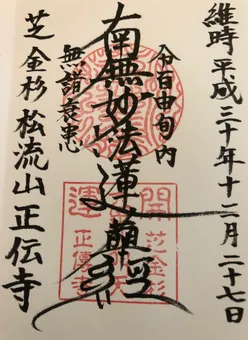 維時平成三十年十二月二十七日
令百由旬内
南無妙法蓮華經
無諸衰患
芝金杉 松流山 正伝寺
開運
芝金杉
正傳寺